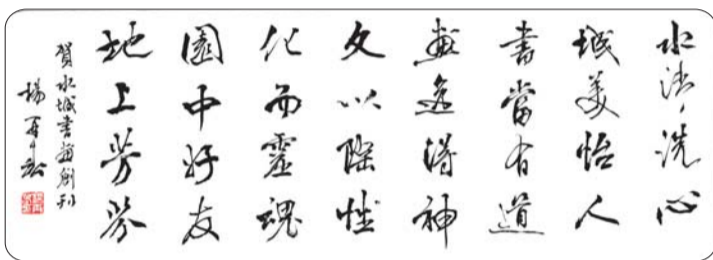 水清洗心
城美怡人
書當有道
畫意得神
文以陶性
化而靈魂
園中好友
地上芳芬
賀水城書畫創刊
楊再